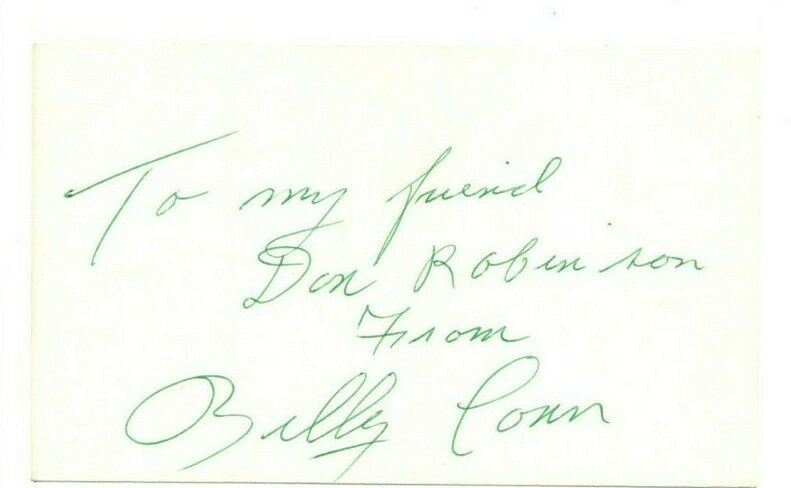 To my friend
Don Robinson
From
Billy Conn